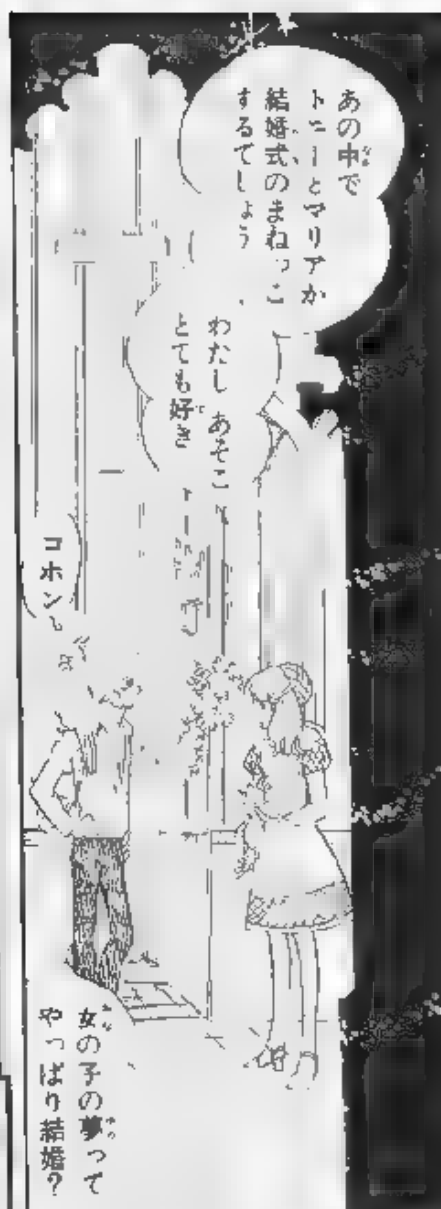 あの中で
トニーとマリアが
結婚式のまねっこ
するでしょう
わたし あそこ
とても好き
コホン
女の子の夢って
やっぱり結婚?